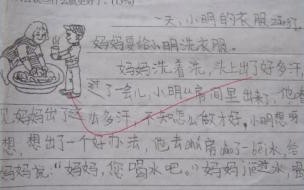 一天,小明的衣服
妈妈要给小明洗衣服。
妈妈洗着洗,头上出了好多汗
过了一会儿,小明从房间里出来,他
见妈妈出了这么多汗,不知怎么做才好,小明
想,想出了一个好办法,他去
的水,给
妈妈说:“妈妈,您喝水吧。”妈妈
水,